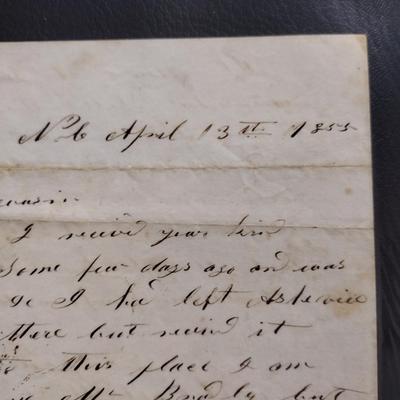 No 6 April 13th 1855
cousin
I receive your kind
some few days ago and was
I had left Asheville
there but recivd it
this place I am
Mr Bradly but